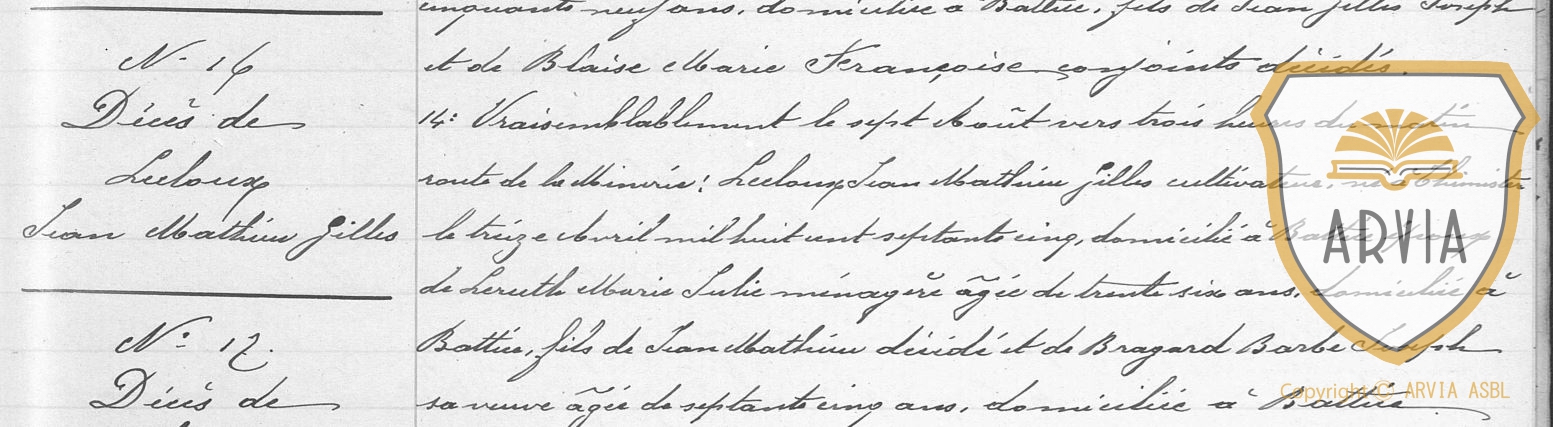 cinquante neuf ans, domiciliée à Battice, fils de Jean Gilles Joseph
N° 16
et de Blaise Marie Françoise conjoints décédés.
Décès de
14: Vraisemblablement le sept Août vers trois heures du matin
Lecloux
route de la Minerie: Lecloux Jean Mathieu Gilles cultivateur, né à Thimister
Jean Mathieu Gilles
le treize Avril mil huit cent septante cinq, domicilié à Battice époux
de Leruth Marie Julie ménagère âgée de trente six ans, domiciliée à
N° 17.
Battice, fils de Jean Mathieu décédé et de Bragard Barbe Joseph
Décès de
sa veuve âgée de septante cinq ans, domiciliée à Battice
ARVIA
Copyright © ARVIA ASBL